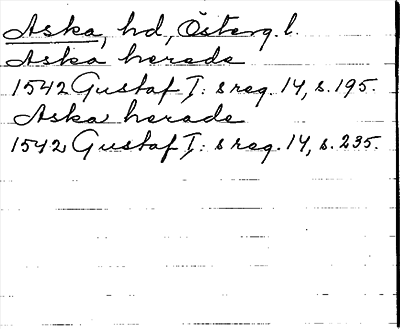 Aska, hd, Österg. l.
Aska herede
1542 Gustaf I: s reg. 14, s. 195.
Aska herade
1542 Gustaf I: s reg. 14, s. 235.